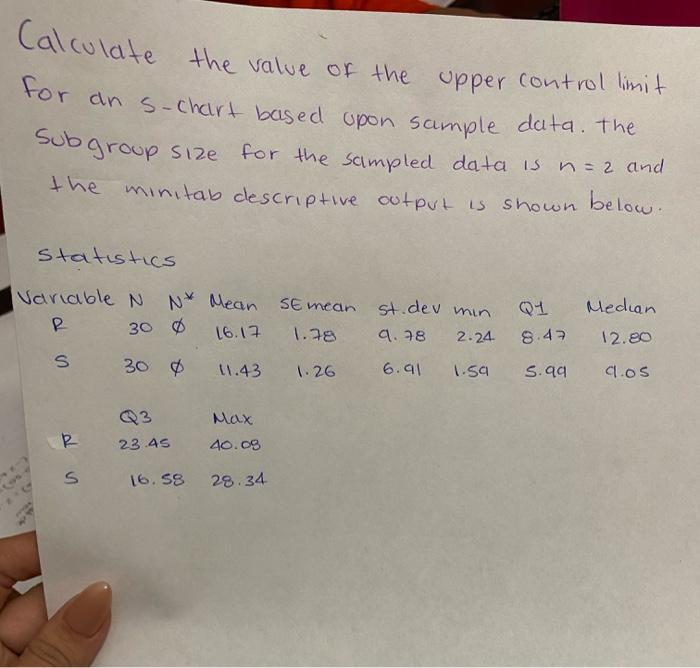 Calculate the value of the upper control limit
for an s-chart based upon sample data. The
Subgroup size for the sampled data is n = 2 and
the minitab descriptive output is shown below.
Statistics
Variable N N* Mean SE mean st.dev min Q1 Median
R 30 ∅ 16.17 1.78 9.78 2.24 8.47 12.80
S 30 ∅ 11.43 1.26 6.91 1.59 5.99 9.05
Q3 Max
R 23.45 40.08
S 16.58 28.34